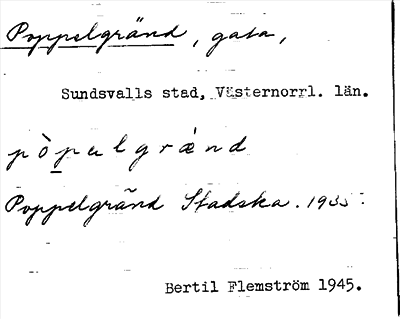 Poppelgränd, gata,
Sundsvalls stad, Västernorrl. län.
pòpelgrànd
Poppelgränd Stadska. 1935.
Bertil Flemström 1945.